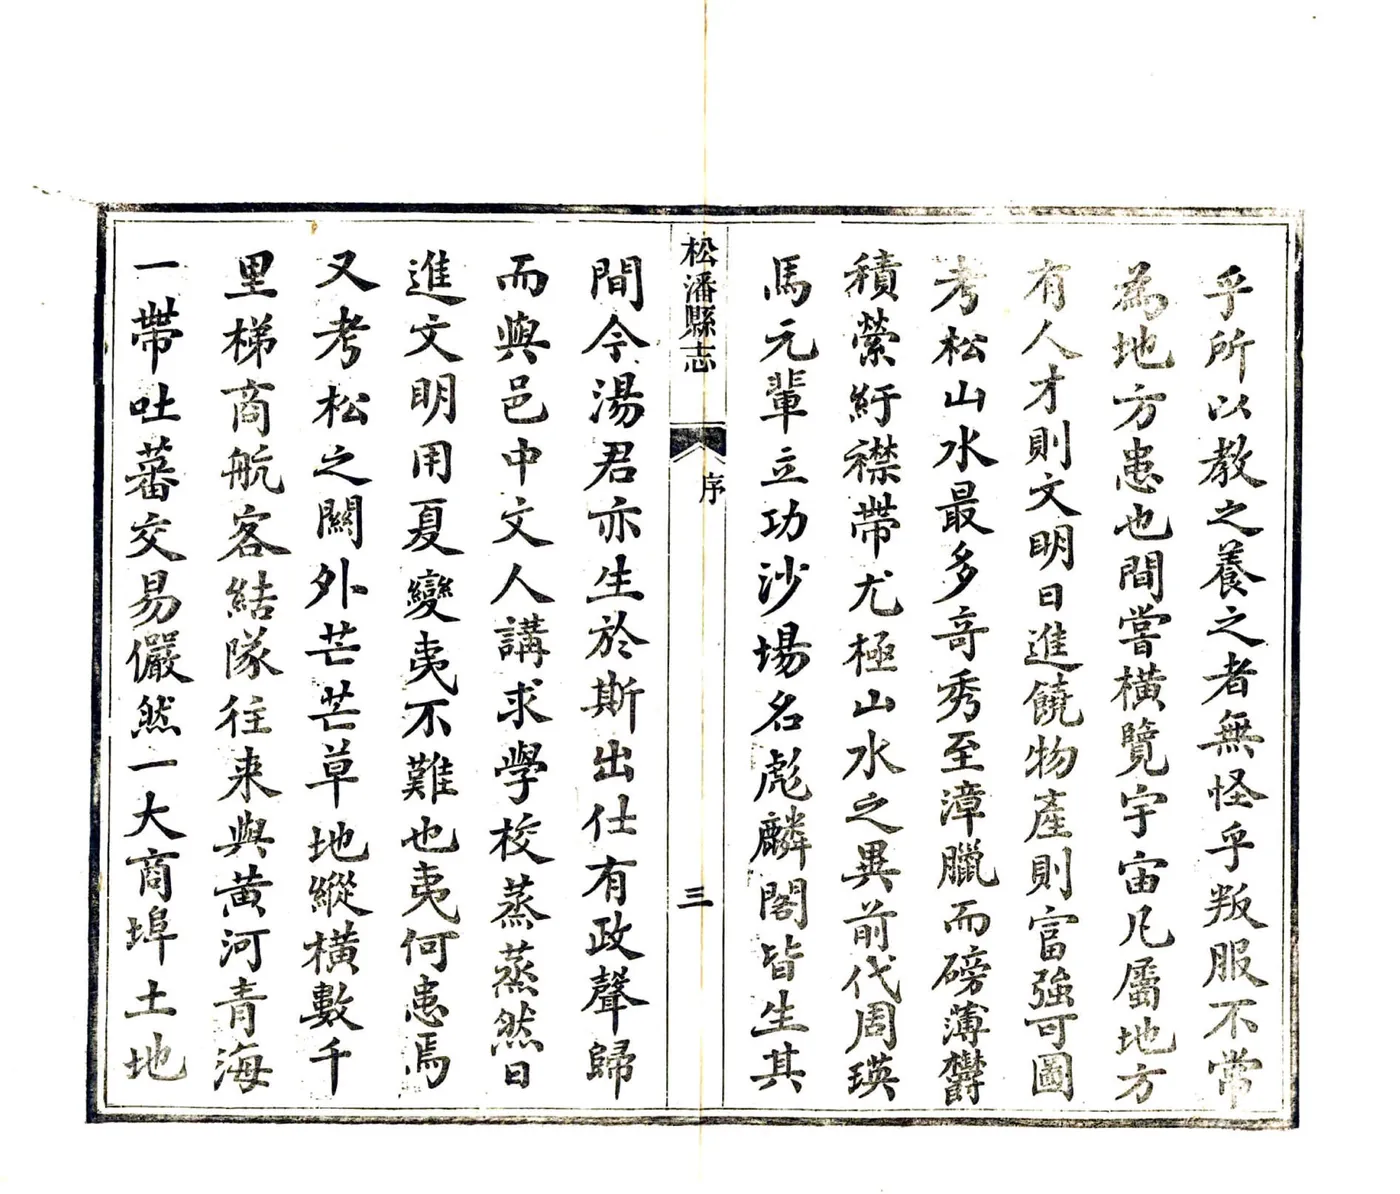 乎所以教之養之者無怪乎叛服不常
為地方患也間嘗橫覽宇宙凡屬地方
有人才則文明日進饒物產則富強可圖
考松山水最多奇秀至漳臘而磅薄欝
積縈紆襟帶尤極山水之異前代周瑛
馬元輩立功沙場名彪麟閣皆生其
松潘縣志
序
三
間今湯君亦生於斯出仕有政聲歸
而與邑中文人講求學校蒸蒸然日
進文明用夏變夷不難也夷何患焉
又考松之關外芒芒草地縱橫數千
里梯商航客結隊往来與黃河青海
一帶吐蕃交易儼然一大商埠土地